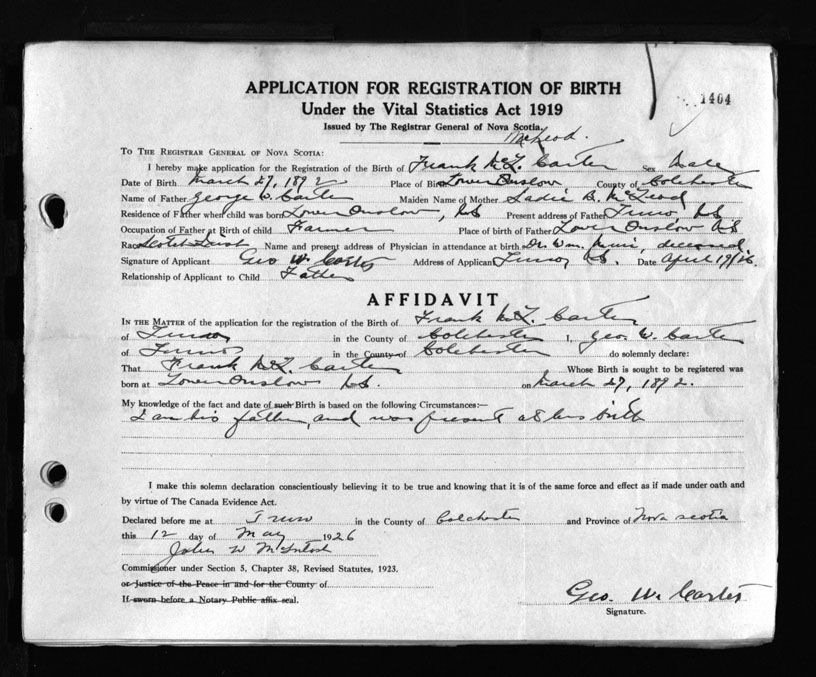 APPLICATION FOR REGISTRATION OF BIRTH
1404
Under the Vital Statistics Act 1919
Issued by The Registrar General of Nova Scotia.
McLeod.
TO THE REGISTRAR GENERAL OF NOVA SCOTIA:
I hereby make application for the Registration of the Birth of Frank McL. Carter Sex Male
Date of Birth March 27, 1892 Place of Birth Lower Onslow County of Colchester
Name of Father George W. Carter Maiden Name of Mother Sadie B. McLeod
Residence of Father when child was born Lower Onslow, N.S Present address of Father Truro, N.S.
Occupation of Father at Birth of child Farmer Place of birth of Father Lower Onslow N.S
Race Scotch Name and present address of Physician in attendance at birth Dr. Wm. deceased
Signature of Applicant Geo W. Carter Address of Applicant Truro N.S. Date April 19/26.
Relationship of Applicant to Child Father
AFFIDAVIT
IN THE MATTER of the application for the registration of the Birth of Frank McL. Carter
of Truro in the County of Colchester I, Geo. W. Carter
of Truro in the County of Colchester do solemnly declare:
That Frank McL. Carter Whose Birth is sought to be registered was
born at Lower Onslow N.S. on March 27, 1892.
My knowledge of the fact and date of such Birth is based on the following Circumstances:—
I am his father, and was present at his birth
I make this solemn declaration conscientiously believing it to be true and knowing that it is of the same force and effect as if made under oath and
by virtue of The Canada Evidence Act.
Declared before me at Truro in the County of Colchester and Province of Nova Scotia
this 12 day of May 1926
John W McIntosh
Commissioner under Section 5, Chapter 38, Revised Statutes, 1923.
or Justice of the Peace in and for the County of
If sworn before a Notary Public affix seal.
Geo. W. Carter
Signature.